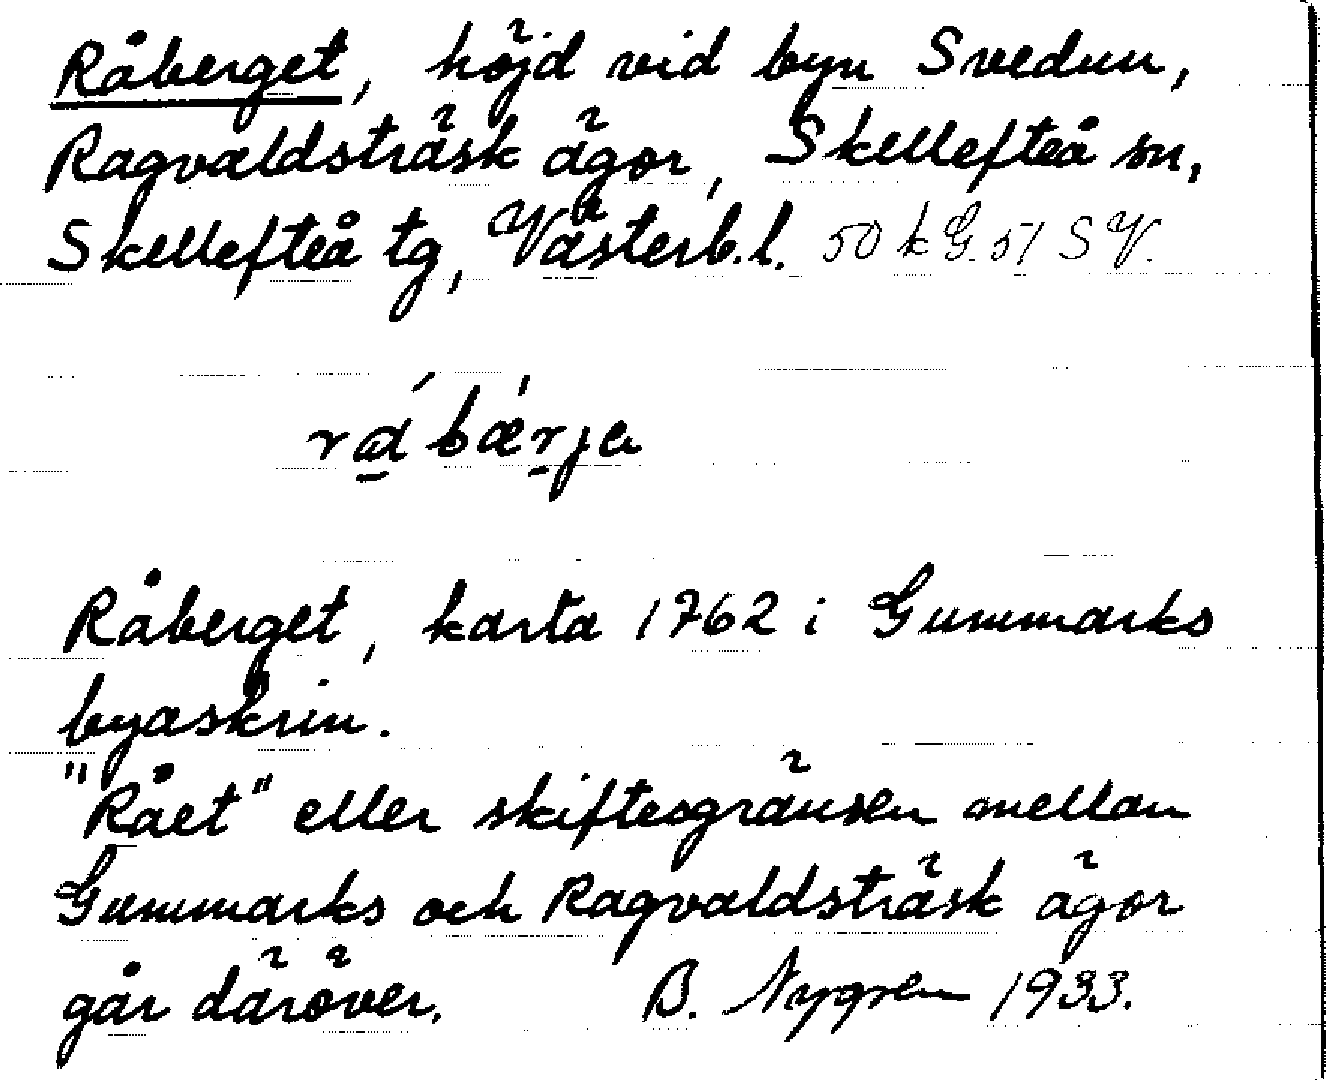 Råberget, höjd vid byn Svedun,
Ragvaldsträsk ägor, Skellefteå sn,
Skellefteå tg, Västerb.l. 50 k G. 51 SV.
Råberget, karta 1762 i Gummarks
byaskrin.
"Rået" eller skiftesgränsen mellan
Gummarks och Ragvaldsträsk ägor
går däröver. B. Nygren 1933.